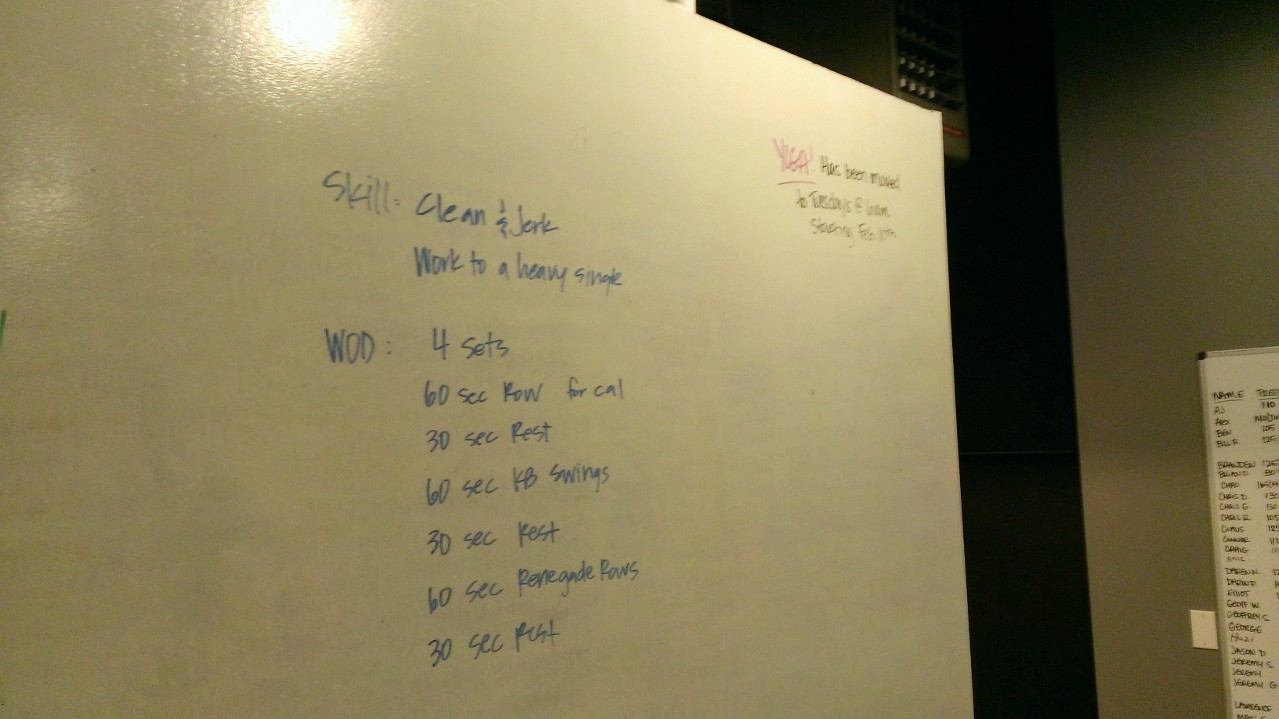 Skill: Clean & Jerk
Work to a heavy single
WOD: 4 sets
60 sec Row for cal
30 sec Rest
60 sec KB Swings
30 sec Rest
60 sec Renegade Rows
30 sec Rest
YOGA! Has been moved
to Tuesdays @
starting Feb 10th
NAME
AJ
Alex
BEN
BILL R
BRANDEN
BRIAN D.
CHAD
CHRIS D.
CHRIS G
CHRIS R.
CRAIG
DAREN N.
DARIN P.
Elliot
GEOFF W
GEOFFREY C
GEORGE
JASON D
JEREMY C
JEREMY
JEREMY G
LAWRENCE